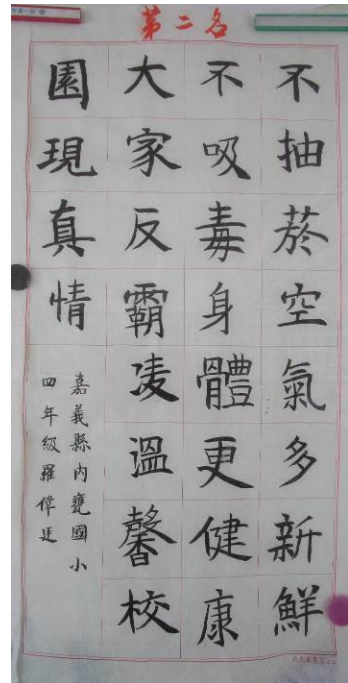 第二名
不抽菸空氣多新鮮
不吸毒身體更健康
大家反霸凌溫馨校
園現真情
嘉義縣內甕國小
四年級羅偉廷